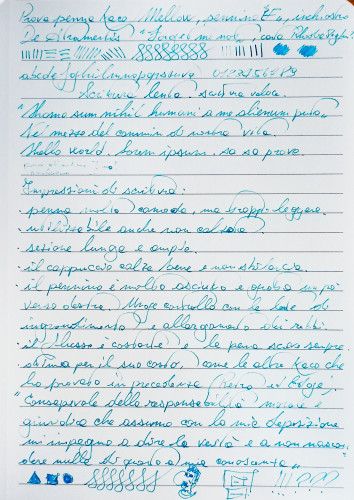 Prova penna Kaco Mellow, pennino EF, inchiostro
De Atramentis "Forget me not", carta
abcdefghilmnopqrstuvz 0123456789
Scrittura lenta. scrittura veloce.
"Homo sum nihil humani a me alienum puto"
Nel mezzo del cammin di nostra vita.
Hello world. Lorem ipsum. sa sa prova.
Impressioni di scrittura:
· penna molto comoda, ma troppo leggera.
· utilizzabile anche non calzata
· sezione lunga e ampia.
· il cappuccio calza bene e non sbilancia.
· il pennino è molto asciutto e gratta un po'
verso destra. Urge controllo con la lente di
ingrandimento e allargamento dei rebbi.
· il flusso è costante e la penna scrive sempre.
· ottima per il suo costo, come le altre Kaco che
ho provato in precedenza (Retro ed Edge).
"Consapevole della responsabilità morale e
giuridica che assumo con la mia deposizione
mi impegno a dire la verità e a non nascon-
dere nulla di quanto a mia conoscenza"